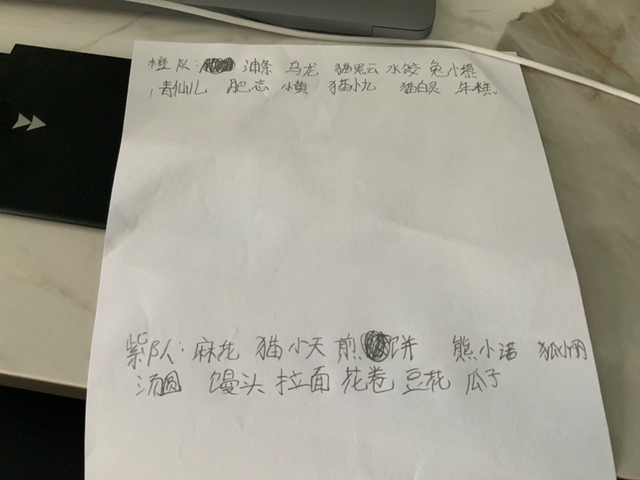 橙队:油条 乌龙 猫黑云 水饺 兔小橙
青仙儿 肥志 小黄 猫小九 猫白灵 年糕。
紫队:麻花 猫小天 煎饼 熊小诺 狐小网
汤圆 馒头 拉面 花卷 豆花 瓜子